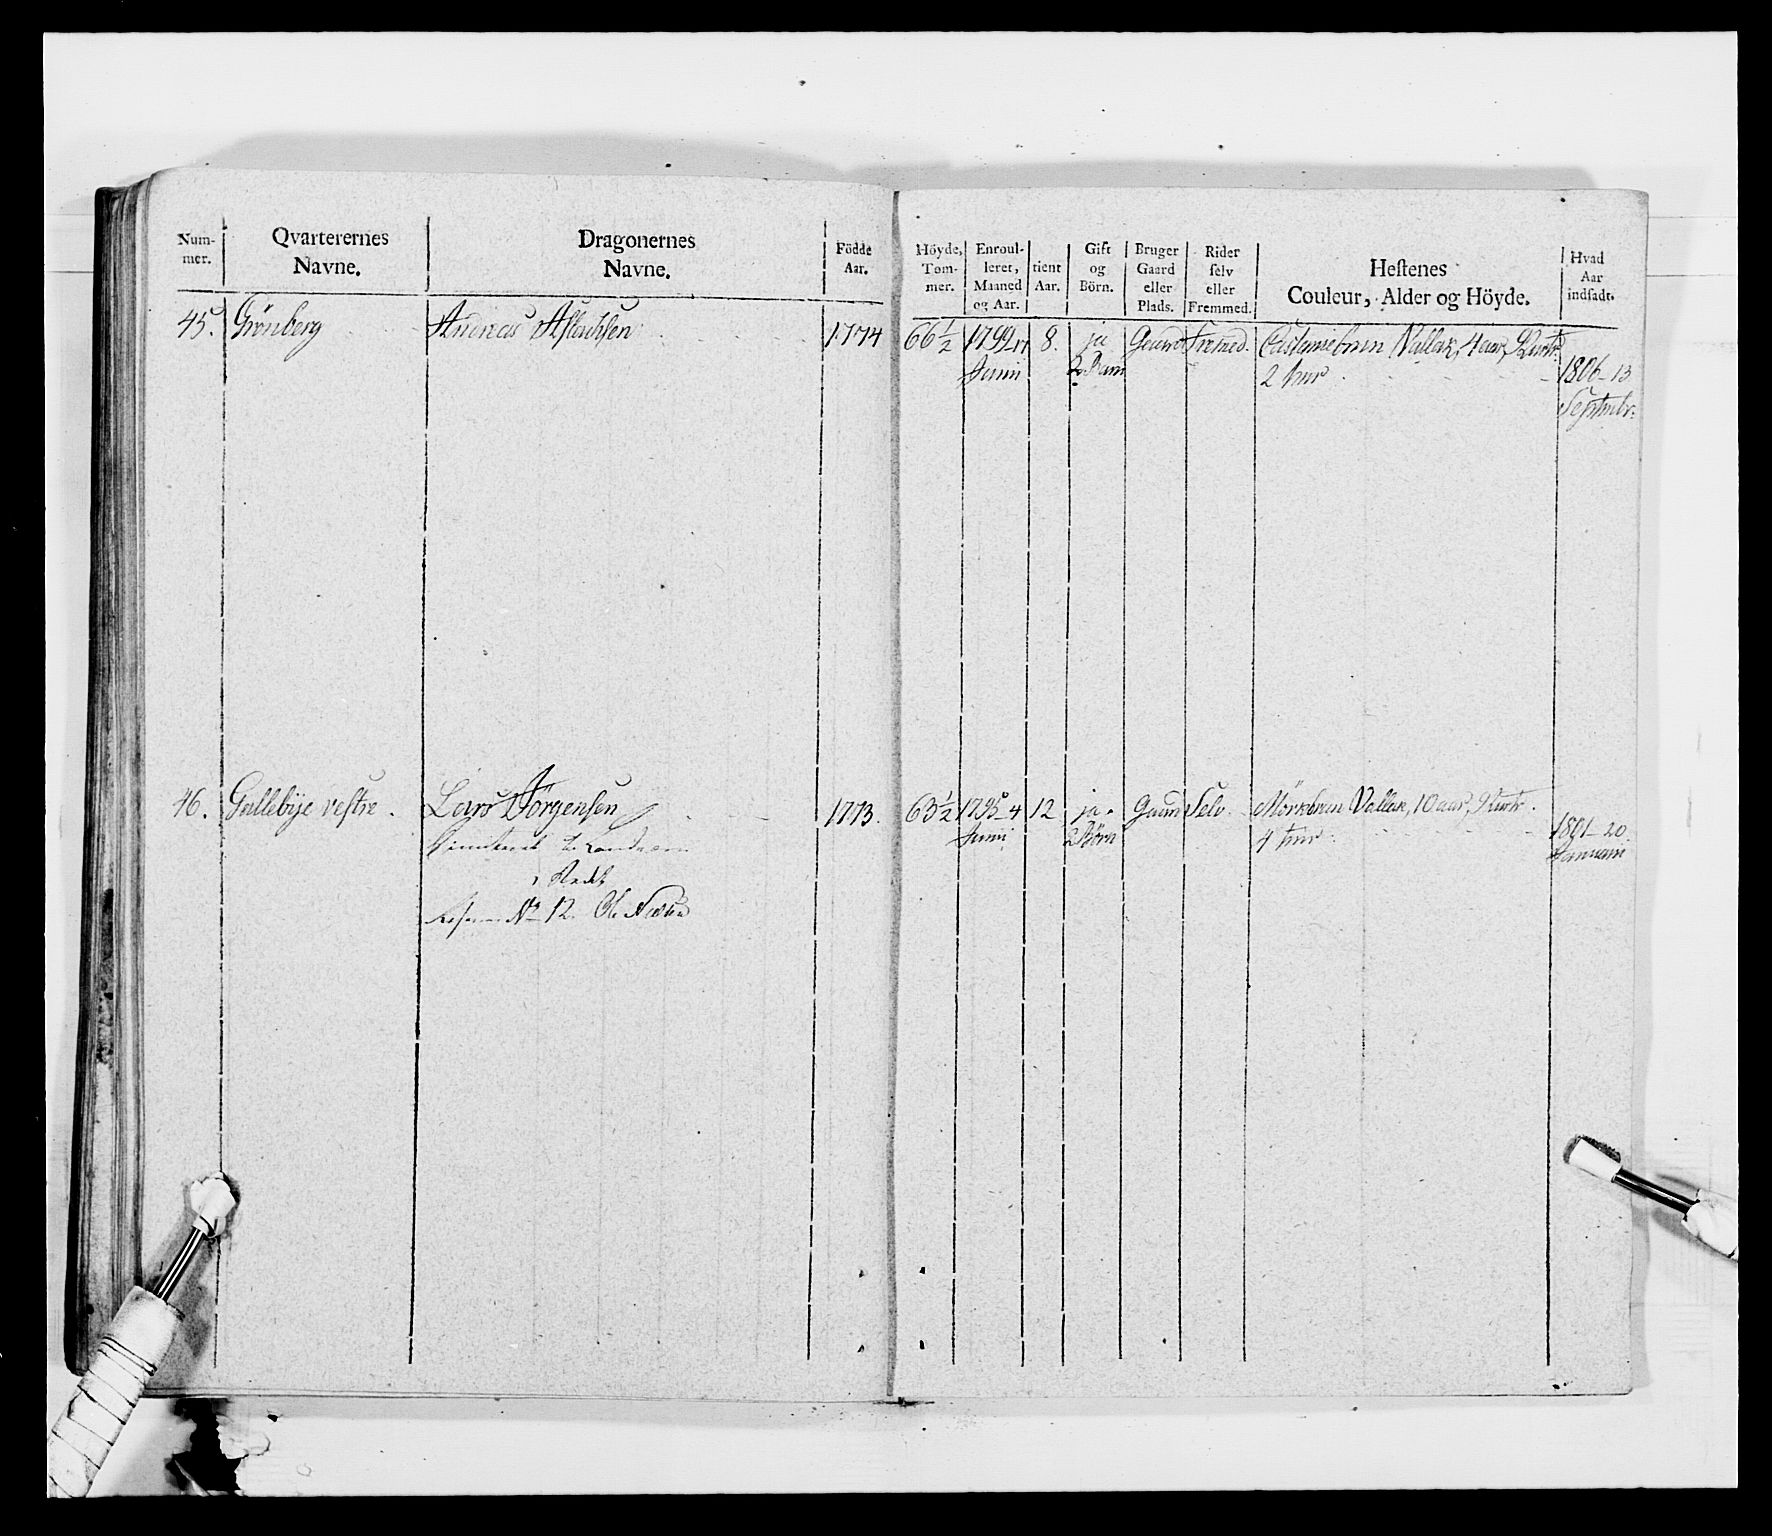 Num-
mer.
Qvarterernes
Navne.
Dragonernes
Navne.
Födde
Aar.
Höyde,
Tom-
mer.
Enroul-
leret,
Maaned
og Aar.
tient
Aar.
Gift
og
Börn.
Bruger
Gaard
eller
Plads.
Rider
selv
eller
Fremmed.
Hestenes
Couleur, Alder og Höyde.
Hvad
Aar
indsadt.
45. Grönberg Andreas Aslachsen 1774 66½ 1799 8. ja Gaard Fremed. Castaniebrun Vallak, 4 aar, 9 Qvart:
Junii 2 Barn 2 tmr 1806-13
Septembr:
46. Gullebÿe vestre. Lars Jörgensen 1773. 63½ 1795-4 12 ja. Gaard Selv Mörkbrun Vallak, 10 aar, 9 Qvartr.
Junii 2 Börn 4 tmr 1801-20
Januarii
No 12. Ole